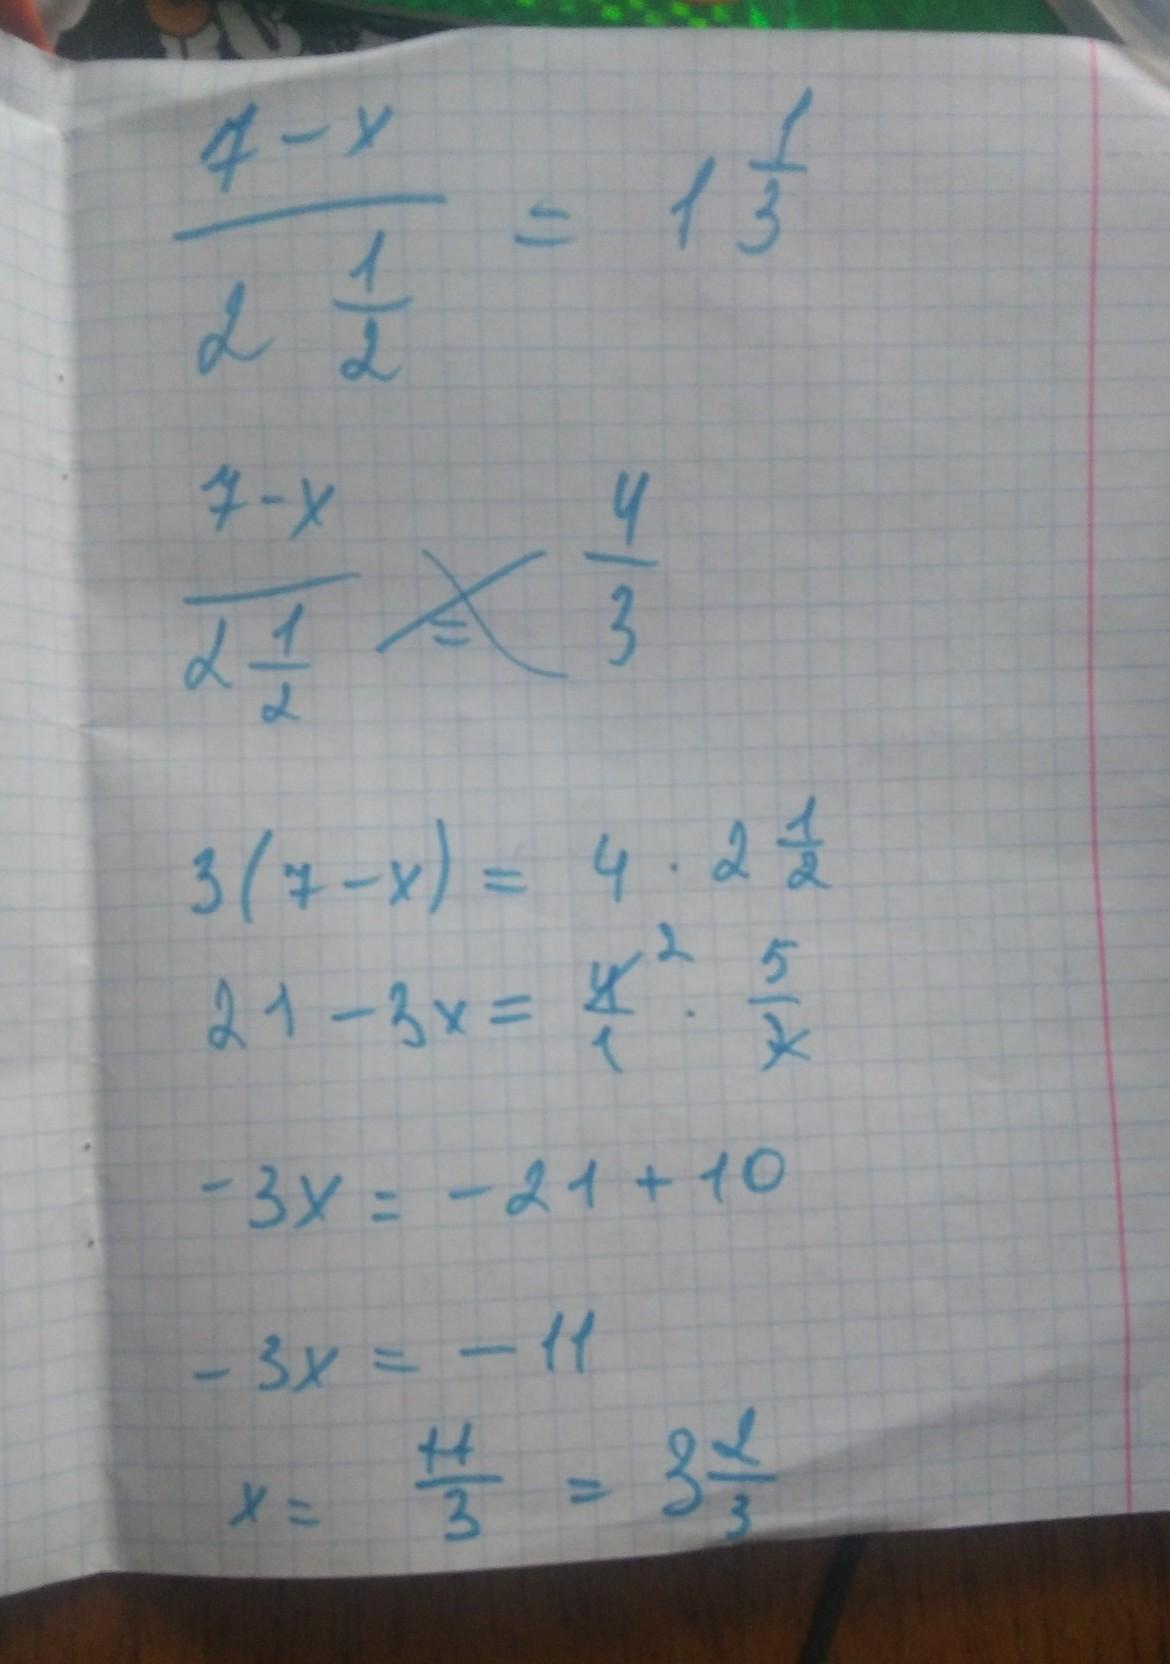 (7-x)/(2 1/2) = 1 1/3
(7-x)/(2 1/2) = 4/3
3(7-x) = 4 · 2 1/2
21-3x = 4/1 2 · 5/2
-3x = -21+10
-3x = -11
x = 11/3 = 3 2/3